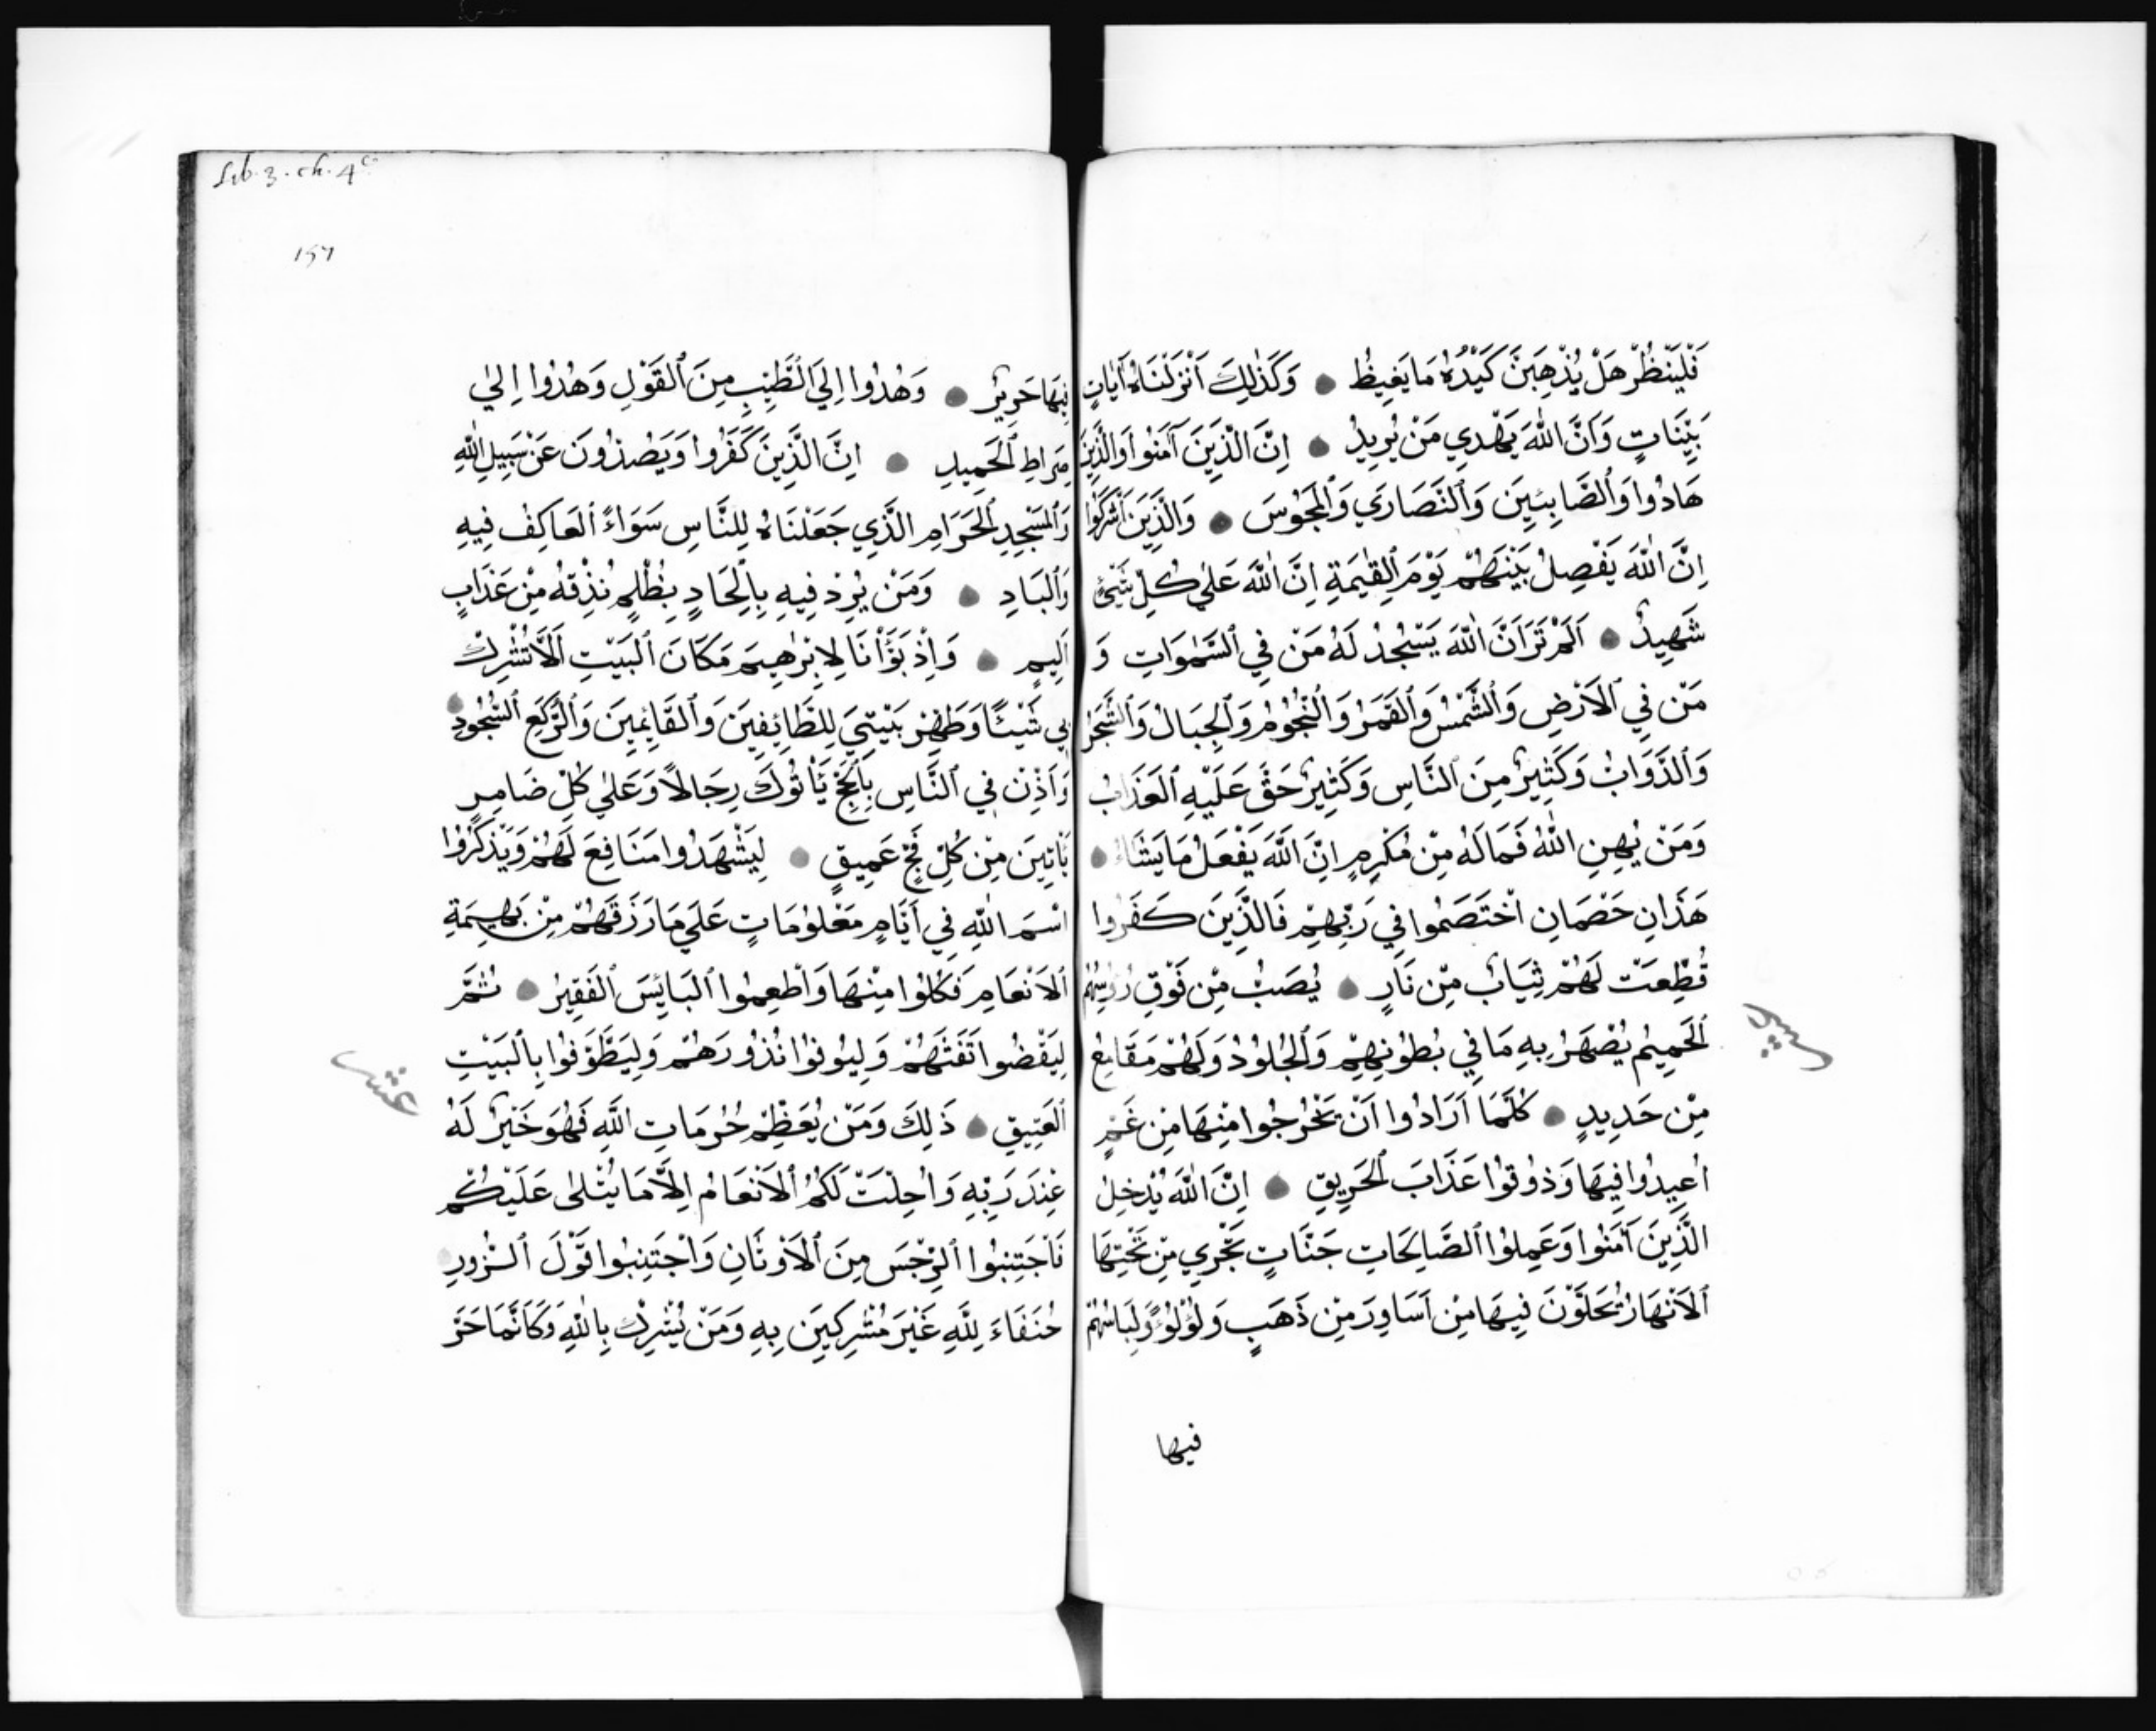 فَلْيَنْظُرْ هَلْ يُذْهِبَنَّ كَيْدُهُ مَا يَغِيظُ ● وَكَذٰلِكَ اَنْزَلْنَاهُ آيَاتٍ
بَيِّنَاتٍ وَاَنَّ اللّٰهَ يَهْدِي مَنْ يُرِيدُ ● اِنَّ الَّذِينَ آمَنُوا وَالَّذِينَ
هَادُوا وَالصَّابِئِينَ وَالنَّصَارَي وَالمَجُوسَ ● وَالَّذِينَ اَشْرَكُوا
اِنَّ اللّٰهَ يَفْصِلُ بَيْنَهُمْ يَوْمَ القِيٰمَةِ اِنَّ اللّٰهَ عَلٰي كُلِّ شَيْئٍ
شَهِيدٌ ● اَلَمْ تَرَ اَنَّ اللّٰهَ يَسْجُدُ لَهُ مَنْ فِي السَّمٰوَاتِ وَ
مَنْ فِي الاَرْضِ وَالشَّمْسُ وَالقَمَرُ وَالنُّجُومُ وَالجِبَالُ وَالشَّجَرُ
وَالدَّوَابُّ وَكَثِيرٌ مِنَ النَّاسِ وَكَثِيرٌ حَقَّ عَلَيْهِ العَذَابُ
وَمَنْ يُهِنِ اللّٰهُ فَمَا لَهُ مِنْ مُكْرِمٍ اِنَّ اللّٰهَ يَفْعَلُ مَا يَشَاءُ ●
هَذَانِ خَصْمَانِ اخْتَصَمُوا فِي رَبِّهِمْ فَالَّذِينَ كَفَرُوا
قُطِّعَتْ لَهُمْ ثِيَابٌ مِنْ نَارٍ ● يُصَبُّ مِنْ فَوْقِ رُؤُسِهِمُ
الحَمِيمُ يُصْهَرُ بِهِ مَا فِي بُطُونِهِمْ وَالجُلُودُ وَلَهُمْ مَقَامِعُ
مِنْ حَدِيدٍ ● كُلَّمَا اَرَادُوا اَنْ يَخْرُجُوا مِنْهَا مِنْ غَمٍّ
اُعِيدُوا فِيهَا وَذُوقُوا عَذَابَ الحَرِيقِ ● اِنَّ اللّٰهَ يُدْخِلُ
الَّذِينَ آمَنُوا وَعَمِلُوا الصَّالِحَاتِ جَنَّاتٍ تَجْرِي مِنْ تَحْتِهَا
الاَنْهَارُ يُحَلَّوْنَ فِيهَا مِنْ اَسَاوِرَ مِنْ ذَهَبٍ وَلُؤْلُؤً وَلِبَاسُهُمْ
فيها
Lib. 3. ch. 4
157
فِيهَا حَرِيرٌ ● وَهُدُوا اِلَي الطَّيِّبِ مِنَ القَوْلِ وَهُدُوا اِلٰي
صِرَاطِ الحَمِيدِ ● اِنَّ الَّذِينَ كَفَرُوا وَيَصُدُّونَ عَنْ سَبِيلِ اللّٰهِ
وَالمَسْجِدِ الحَرَامِ الَّذِي جَعَلْنَاهُ لِلنَّاسِ سَوَاءً العَاكِفُ فِيهِ
وَالبَادِ ● وَمَنْ يُرِدْ فِيهِ بِاِلْحَادٍ بِظُلْمٍ نُذِقْهُ مِنْ عَذَابٍ
اَلِيمٍ ● وَاِذْ بَوَّأْنَا لِاِبْرٰهِيمَ مَكَانَ البَيْتِ اَلَّا تُشْرِكْ
بِي شَيْئًا وَطَهِّرْ بَيْتِيَ لِلطَّائِفِينَ وَالقَائِمِينَ وَالرُّكَّعِ السُّجُودِ ●
وَاَذِّنْ فِي النَّاسِ بِالحَجِّ يَأْتُوكَ رِجَالًا وَعَلٰي كُلِّ ضَامِرٍ
يَأْتِينَ مِنْ كُلِّ فَجٍّ عَمِيقٍ ● لِيَشْهَدُوا مَنَافِعَ لَهُمْ وَيَذْكُرُوا
اسْمَ اللّٰهِ فِي اَيَّامٍ مَعْلُومَاتٍ عَلَي مَا رَزَقَهُمْ مِنْ بَهِيمَةِ
الاَنْعَامِ فَكُلُوا مِنْهَا وَاَطْعِمُوا البَائِسَ الفَقِيرَ ● ثُمَّ
لِيَقْضُوا تَفَثَهُمْ وَلِيُوفُوا نُذُورَهُمْ وَلِيَطَّوَّفُوا بِالبَيْتِ
العَتِيقِ ● ذَلِكَ وَمَنْ يُعَظِّمْ حُرُمَاتِ اللَّهِ فَهُوَ خَيْرٌ لَهُ
عِنْدَ رَبِّهِ وَاُحِلَّتْ لَكُمُ الاَنْعَامُ اِلَّا مَا يُتْلٰى عَلَيْكُمْ
فَاجْتَنِبُوا الرِّجْسَ مِنَ الاَوْثَانِ وَاجْتَنِبُوا قَوْلَ الزُّورِ
حُنَفَاءَ لِلَّهِ غَيْرَ مُشْرِكِينَ بِهِ وَمَنْ يُشْرِكْ بِاللّٰهِ وَكَاَنَّمَا خَرَّ
عشر